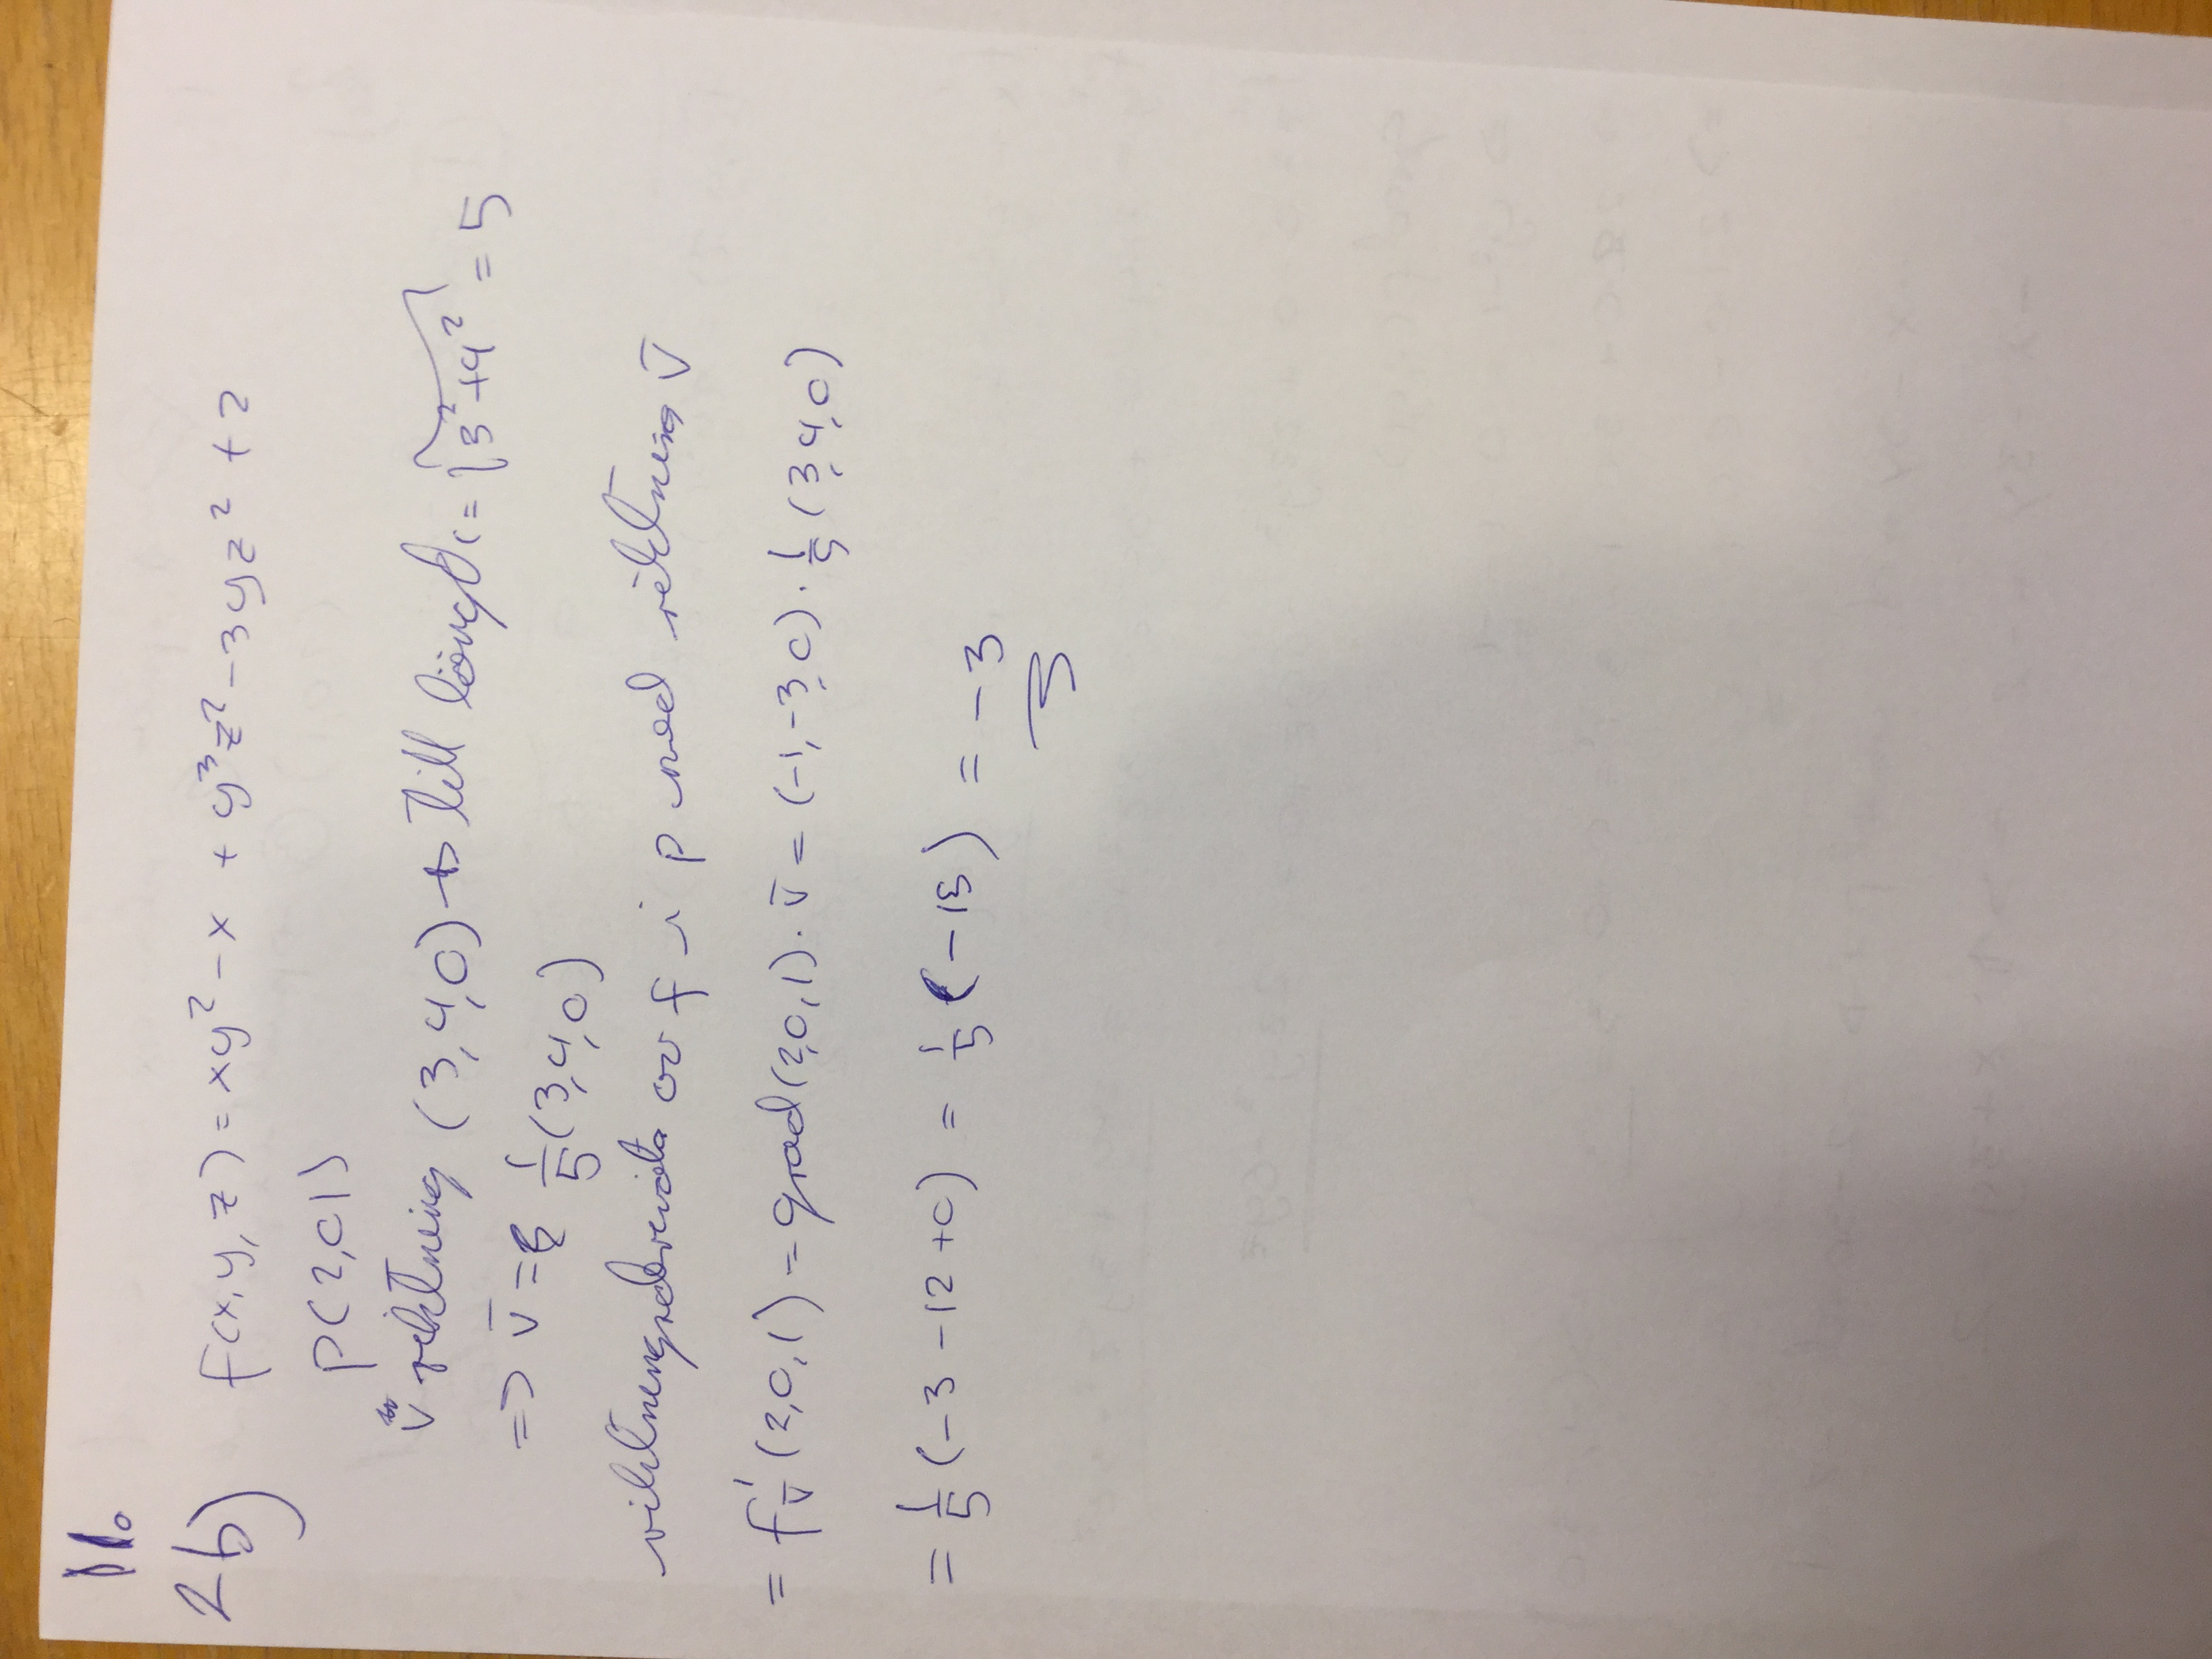 11.
2b) f(x,y,z) = xy² - x + y³z² - 3yz² + 2
p(2,0 1)
v riktning (3,4,0) → till längd 1 = √3²+4² = 5
=> v̄ = 1/5 (3,4,0)
riktningsderivata av f i p med riktning v̄
= f'v̄ (2,0,1) = grad(2,0,1) · v̄ = (-1,-3,0) · 1/5 (3,4,0)
= 1/5 (-3 -12 +0) = 1/5 (-15) = -3